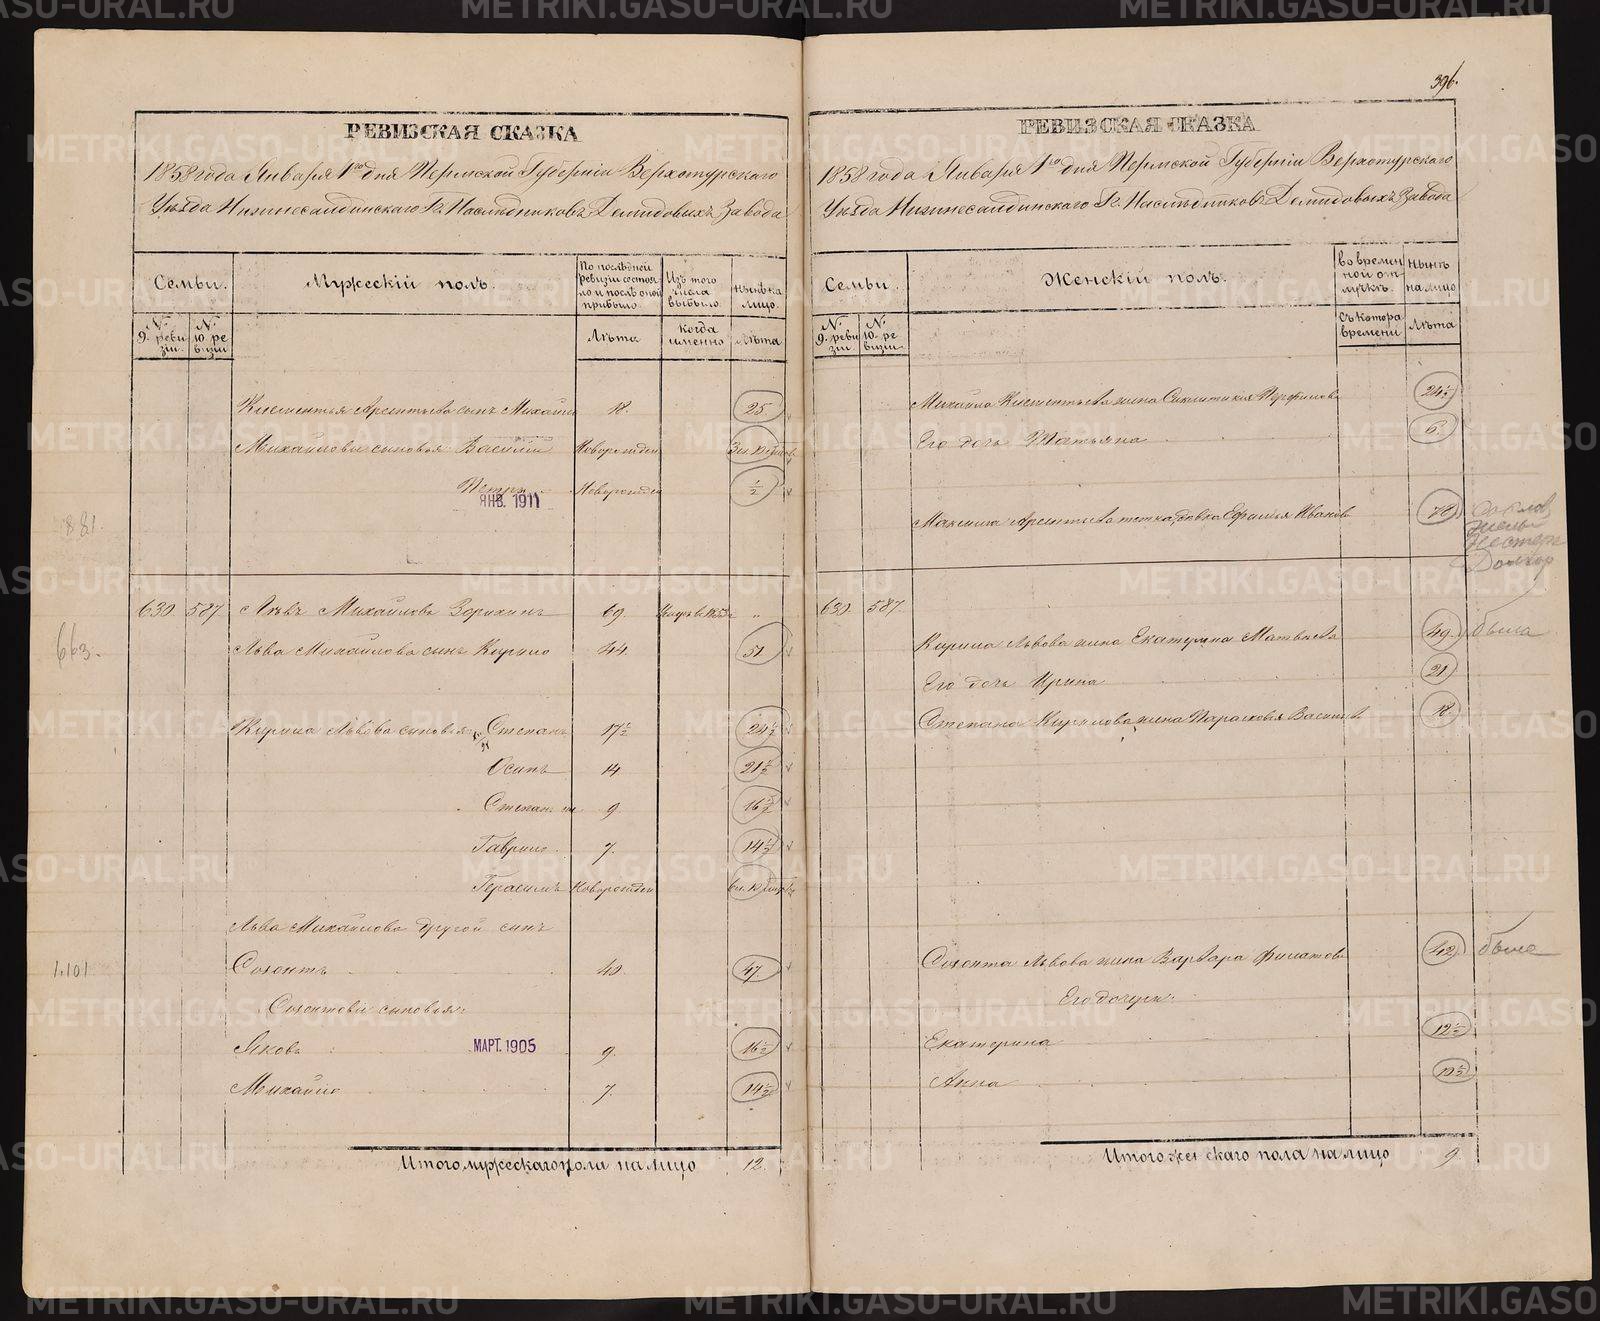 РЕВИЗСКАЯ СКАЗКА
1858 года Января 1го дня Пермской Губернiи Верхотурскаго
Уѣзда Нижнесалдинскаго Гг. Наслѣдниковъ Демидовыхъ Завода
Семьи.
Мужескiй полъ.
По послѣдней ревизiи состояло и послѣ оной прибыло.
Изъ того числа выбыло.
нынѣ на лицо.
№ 9. ревизiи.
№ 10. ревизiи
Лѣта
когда именно
Лѣта
Климентья Арентьева сынъ Михайло 18. 25
Михайловы сыновья Василiй Новорожден
Петръ Новорожден ½
ЯНВ. 1911
881.
630. 587. Левъ Михайловъ 69.
663.
Льва Михайлова сынъ Кирило 44. 51
Кирила Львова сыновья Степанъ 17½ 24½
Осипъ 14 21½
Степанъ 9. 16½
Гаврило 7. 14½
Герасимъ Новорожден
Льва Михайлова другой сынъ
1.101
Созонтъ 40. 47.
Созонтовы сыновья
Яковъ МАРТ. 1905 9. 16½
Михайло 7. 14½
Итого мужескаго пола на лицо 12.
396.
РЕВИЗСКАЯ СКАЗКА
1858 года Января 1го дня Пермской Губернiи Верхотурскаго
Уѣзда Нижнесалдинскаго Гг. Наслѣдниковъ Демидовыхъ Завода
Семьи.
Женскiй полъ.
во временной отлучкѣ.
нынѣ на лицо
№ 9. ревизiи
№ 10. ревизiи.
Съ котора времени
Лѣта
Михайла Климентьева жена Перфилова 24½
Его дочь Татьяна 6.
Максима Арентьева тетка вдовка Ефимья Иванов 78
630. 587.
Кирила Львова жена Екатерина Матвѣева 49. была
Его дочь Ирина 21
Степана Кирилова жена Парасковья Васильев 18.
Созонта Львова жена Варвара Филатова 42
Его дочери:
Екатерина 12½
Анна 10½
Итого женскаго пола на лицо 9
METRIKI.GASO-URAL.RU